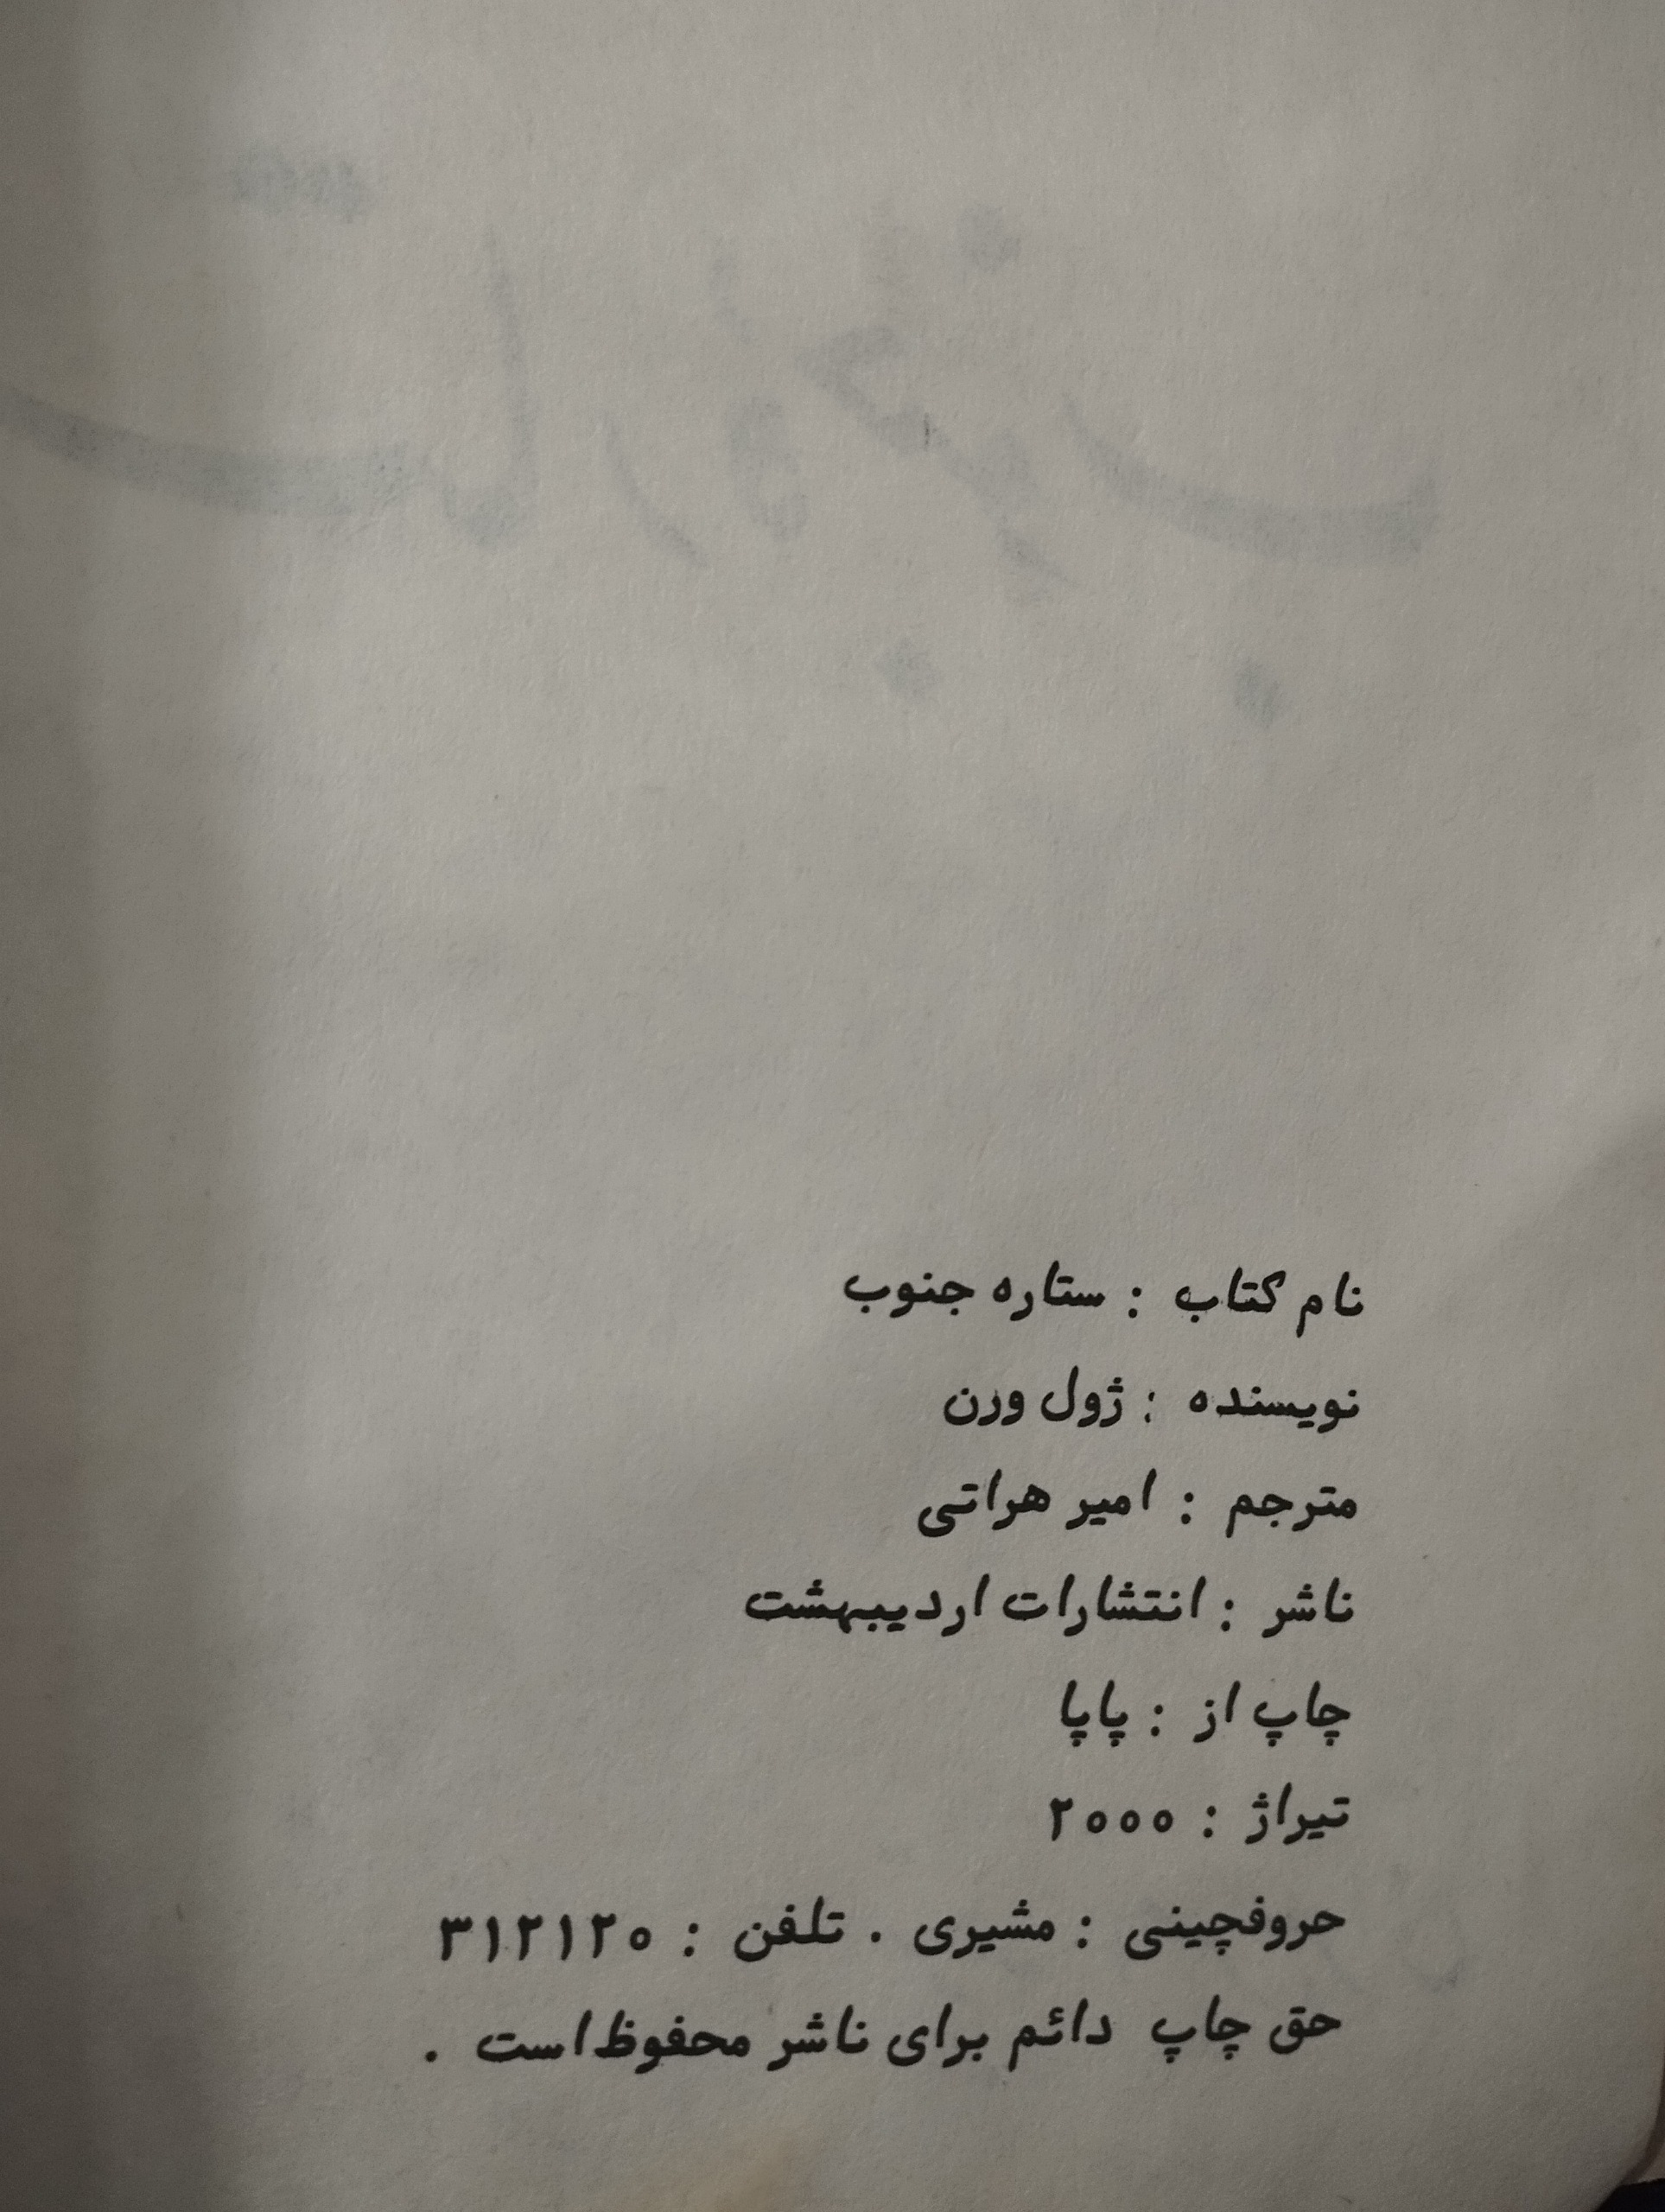 نام کتاب : ستاره جنوب
نویسنده : ژول ورن
مترجم : امیر هراتی
ناشر : انتشارات اردیبهشت
چاپ از : پاپا
تیراژ : ۲۰۰۰
حروفچینی : مشیری . تلفن : ۳۱۲۱۲۰
حق چاپ دائم برای ناشر محفوظ است .